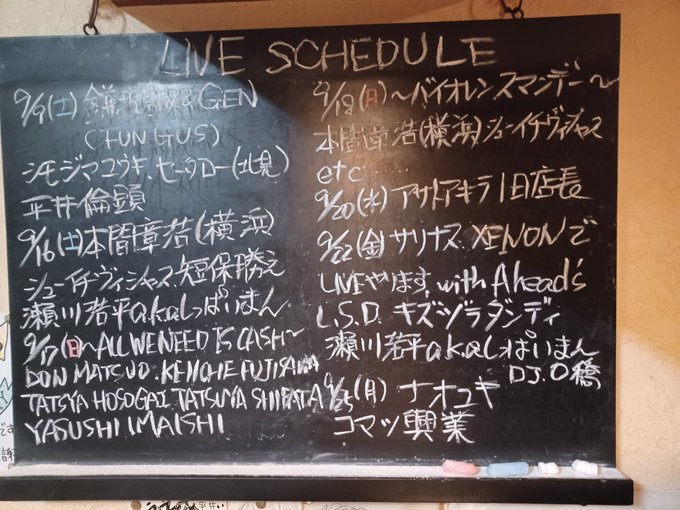 LIVE SCHEDULE
9/9(土) GEN
(FUNGUS)
シモジマユウキ.セータロー(北見)
平井倫顕
9/16(土)本間章若(横浜)
シューイチヴィシャス.短保勝え
瀬川若平a.k.aしっぱいまん
9/17(日)~ALL WE NEED IS CASH~
DON MATSUO. KEIICHE FUJISAWA
TATSYA HOSOGAI. TATSUYA SHIBATA
YASUSHI IMAISHI
9/18(月)~バイオレンスマンデー~
本間章若(横浜)シューイチヴィシャス
etc
9/20(水) アサトアキラ1日店長
9/22(金) サリナス. XENONで
LIVEやります. with Ahead's
L.S.D. キズヅラダンディ
瀬川若平a.k.aしっぱいまん
DJ.O橋
9/25(月) ナオユキ
コマツ興業